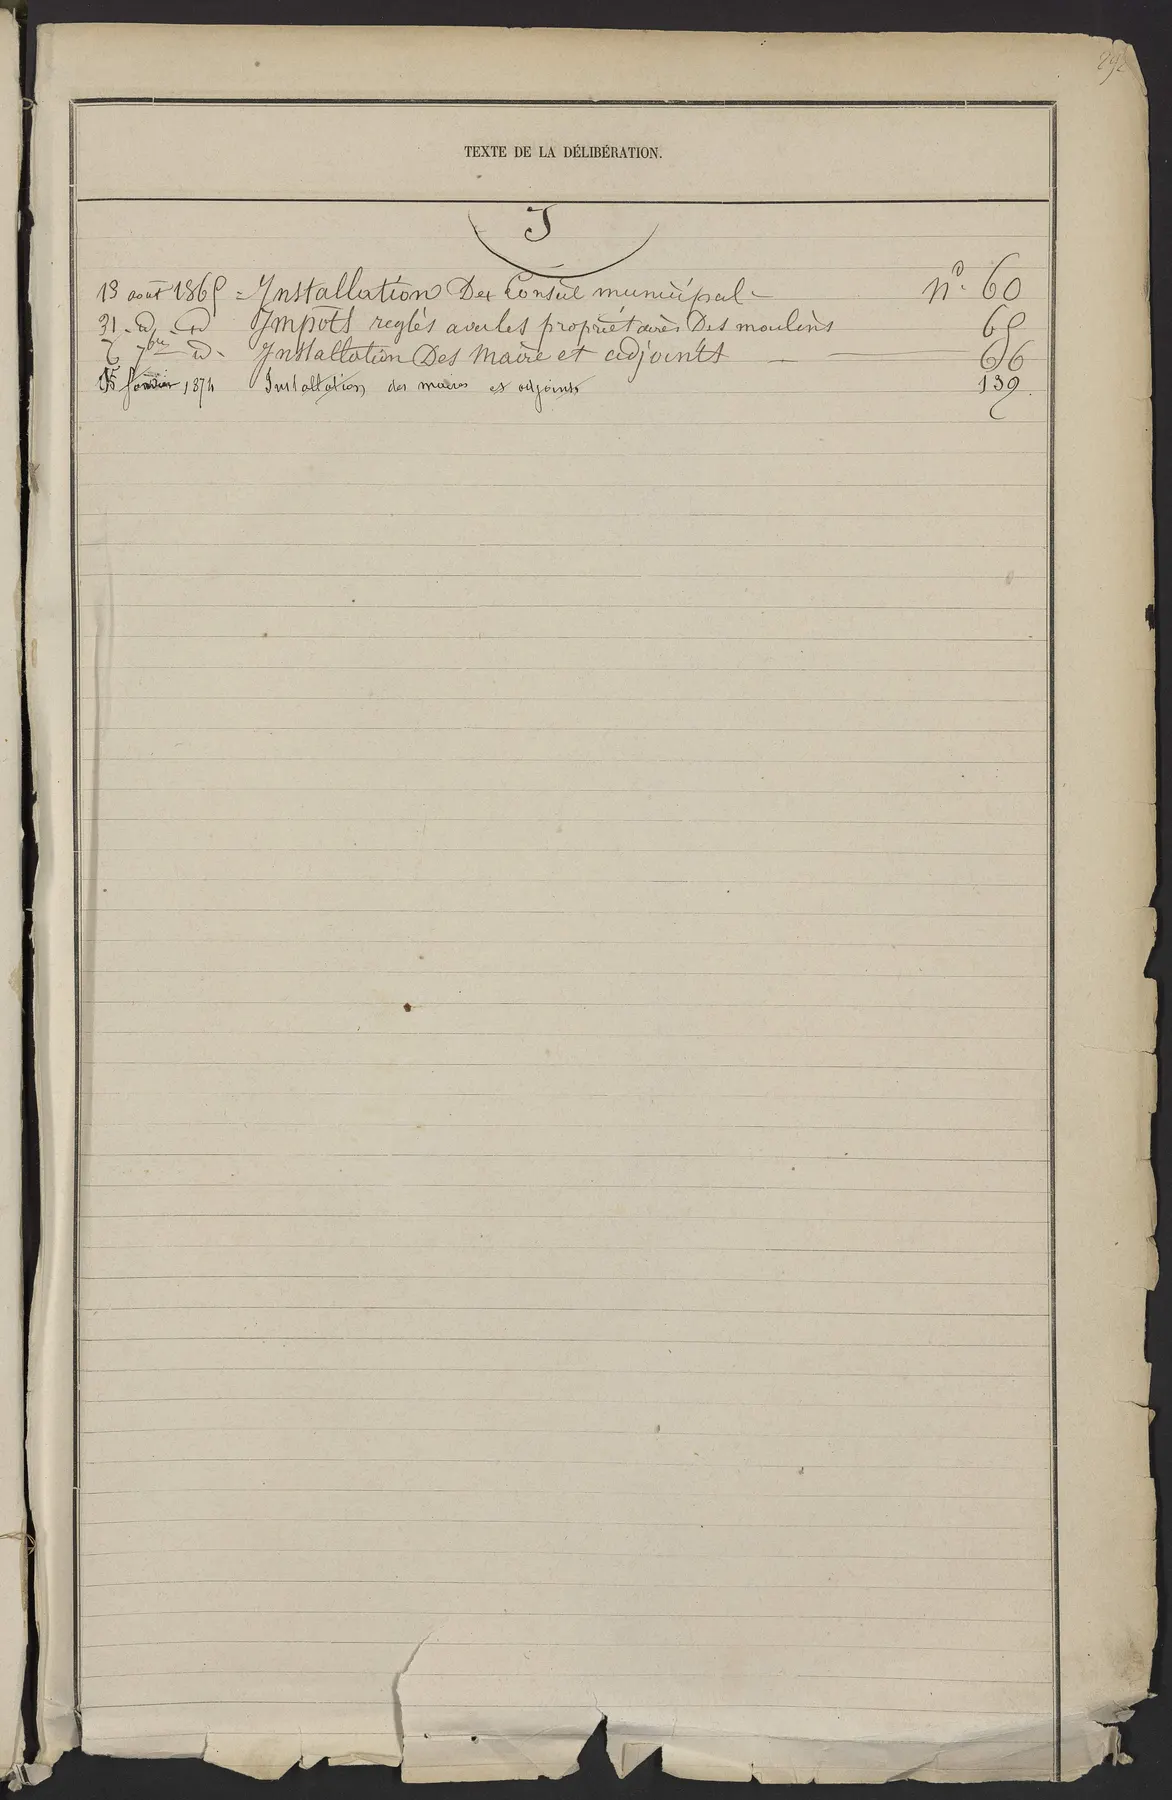 TEXTE DE LA DÉLIBÉRATION.
I
13 août 1865 = Installation Des Conseil municipal - n° 60
31 - d° - d° Impots reglés avec les propriétaires Des moulins 65
7bre d° - Installation Des Maire et adjoints 66
15 1874 Installation des maires et adjoints 139